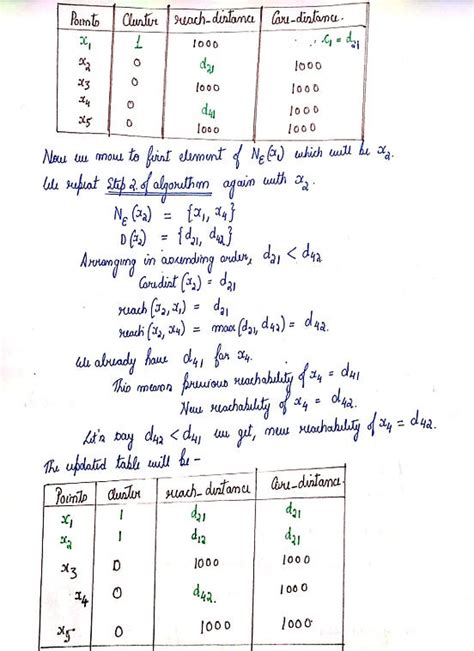 Points Cluster reach-distance Core-distance.
x₁ 1 1000 x₁ = d₂₁
x₂ 0 d₂₁ 1000
x₃ 0 1000 1000
x₄ 0 d₄₁ 1000
x₅ 0 1000 1000
Now we move to first element of N_ε(x₁) which will be x₂.
We repeat Step 2 of algorithm again with x₂.
N_ε(x₂) = {x₁, x₄}
D(x₂) = {d₂₁, d₄₂}
Arranging in ascending order, d₂₁ < d₄₂
Coredist(x₂) = d₂₁
reach(x₂, x₁) = d₂₁
reach(x₂, x₄) = max(d₂₁, d₄₂) = d₄₂.
We already have d₄₁ for x₄.
This means previous reachability of x₄ = d₄₁
New reachability of x₄ = d₄₂.
Let's say d₄₂ < d₄₁ we get, new reachability of x₄ = d₄₂.
The updated table will be -
Points Cluster reach-distance Core-distance
x₁ 1 d₂₁ d₂₁
x₂ 1 d₁₂ d₂₁
x₃ 0 1000 1000
x₄ 0 d₄₂. 1000
x₅ 0 1000 1000